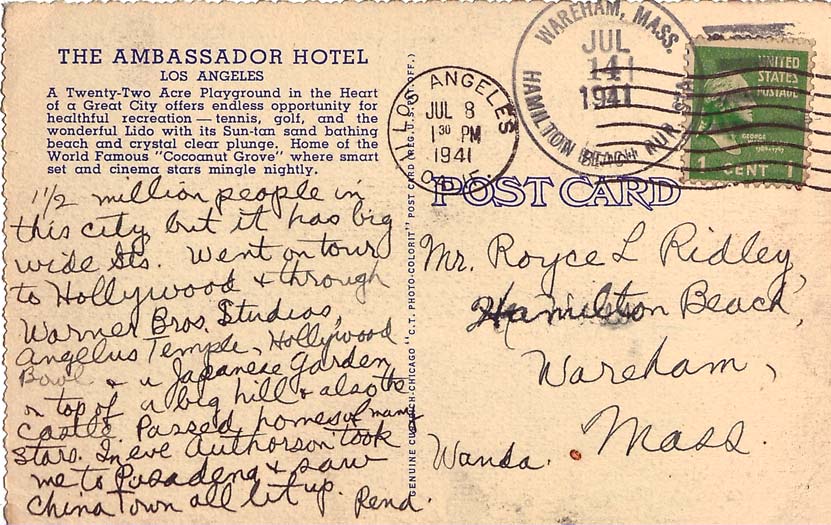 THE AMBASSADOR HOTEL
LOS ANGELES
A Twenty-Two Acre Playground in the Heart
of a Great City offers endless opportunity for
healthful recreation — tennis, golf, and the
wonderful Lido with its Sun-tan sand bathing
beach and crystal clear plunge. Home of the
World Famous "Cocoanut Grove" where smart
set and cinema stars mingle nightly.
1 1/2 million people in
this city but it has big
wide sts. Went on tour
to Hollywood & through
Warner Bros. Studios,
Angelus Temple, Hollywood
Bowl & a Japanese Garden
on top of a big hill & also the
castle. Passed homes of many
stars. In eve Authorson took
me to Pasadena & saw
China Town all lit up.
Wanda.
GENUINE CURTEICH-CHICAGO "C.T. PHOTO-COLORIT" POST CARD (REG. U.S. PAT. OFF.)
LOS ANGELES
JUL 8
1 30 PM
1941
CALIF
WAREHAM, MASS.
JUL
14
1941
HAMILTON BEACH RUR. STA.
UNITED
STATES
POSTAGE
1 CENT 1
POST CARD
Mr. Royce L Ridley,
Hamilton Beach,
Wareham,
Mass.